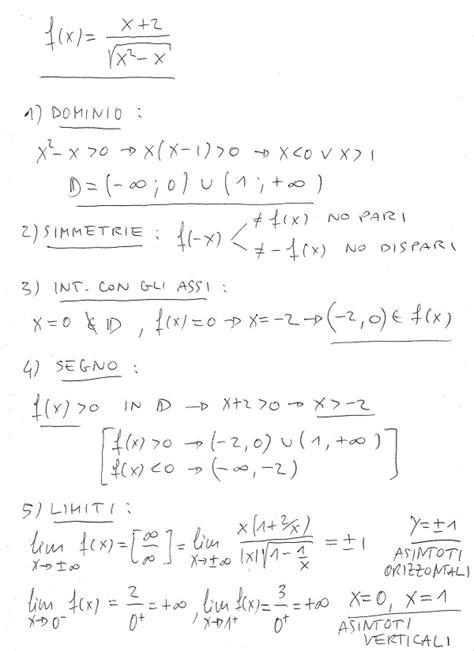 f(x) = (x+2)/√(x²-x)
1) DOMINIO :
x²-x>0 → x(x-1)>0 → x<0 ∨ x>1
D=(-∞;0) ∪ (1;+∞)
2) SIMMETRIE : f(-x) < ≠ f(x) NO PARI
≠ -f(x) NO DISPARI
3) INT. CON GLI ASSI :
x=0 ∉ D , f(x)=0 → x=-2 → (-2,0) ∈ f(x)
4) SEGNO :
f(x)>0 IN D → x+2>0 → x>-2
[f(x)>0 → (-2,0) ∪ (1,+∞)
f(x)<0 → (-∞,-2)]
5) LIMITI :
lim x→±∞ f(x) = [∞/∞] = lim x→±∞ x(1+2/x)/(|x|√(1-1/x)) = ±1 y=±1
ASINTOTI
ORIZZONTALI
lim x→0⁻ f(x) = 2/0⁺ = +∞ , lim x→1⁺ f(x) = 3/0⁺ = +∞ x=0, x=1
ASINTOTI
VERTICALI